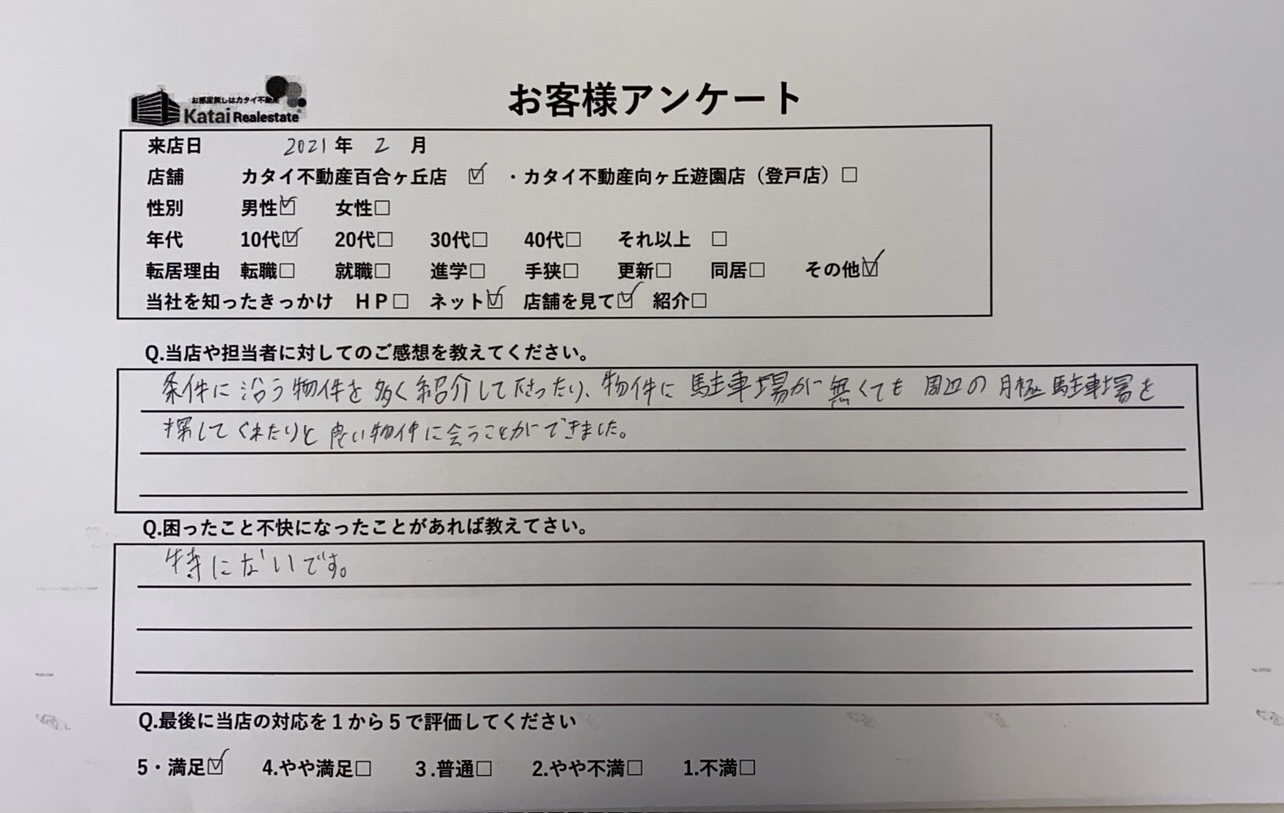 お部屋探しはカタイ不動産
Katai Realestate
お客様アンケート
来店日 2021年 2 月
店舗 カタイ不動産百合ヶ丘店 ☑ ・カタイ不動産向ヶ丘遊園店（登戸店）□
性別 男性☑ 女性□
年代 10代☑ 20代□ 30代□ 40代□ それ以上 □
転居理由 転職□ 就職□ 進学□ 手狭□ 更新□ 同居□ その他☑
当社を知ったきっかけ HP□ ネット☑ 店舗を見て☑ 紹介□
Q.当店や担当者に対してのご感想を教えてください。
条件に沿う物件を多く紹介して下さったり、物件に駐車場が無くても周辺の月極駐車場を
探してくれたりと良い物件に会うことができました。
Q.困ったこと不快になったことがあれば教えてさい。
特にないです。
Q.最後に当店の対応を１から５で評価してください
5・満足☑ 4.やや満足□ 3.普通□ 2.やや不満□ 1.不満□